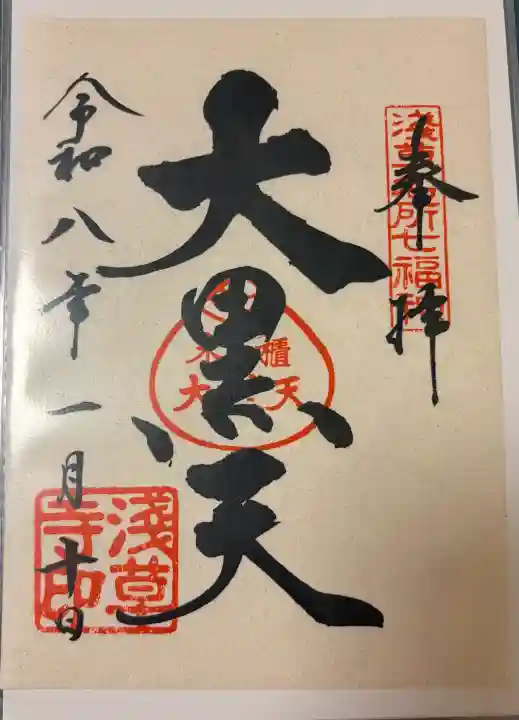 奉拝
淺草名所七福神
大黒天
米櫃
大黒天
令和八年一月十日
淺草
寺印